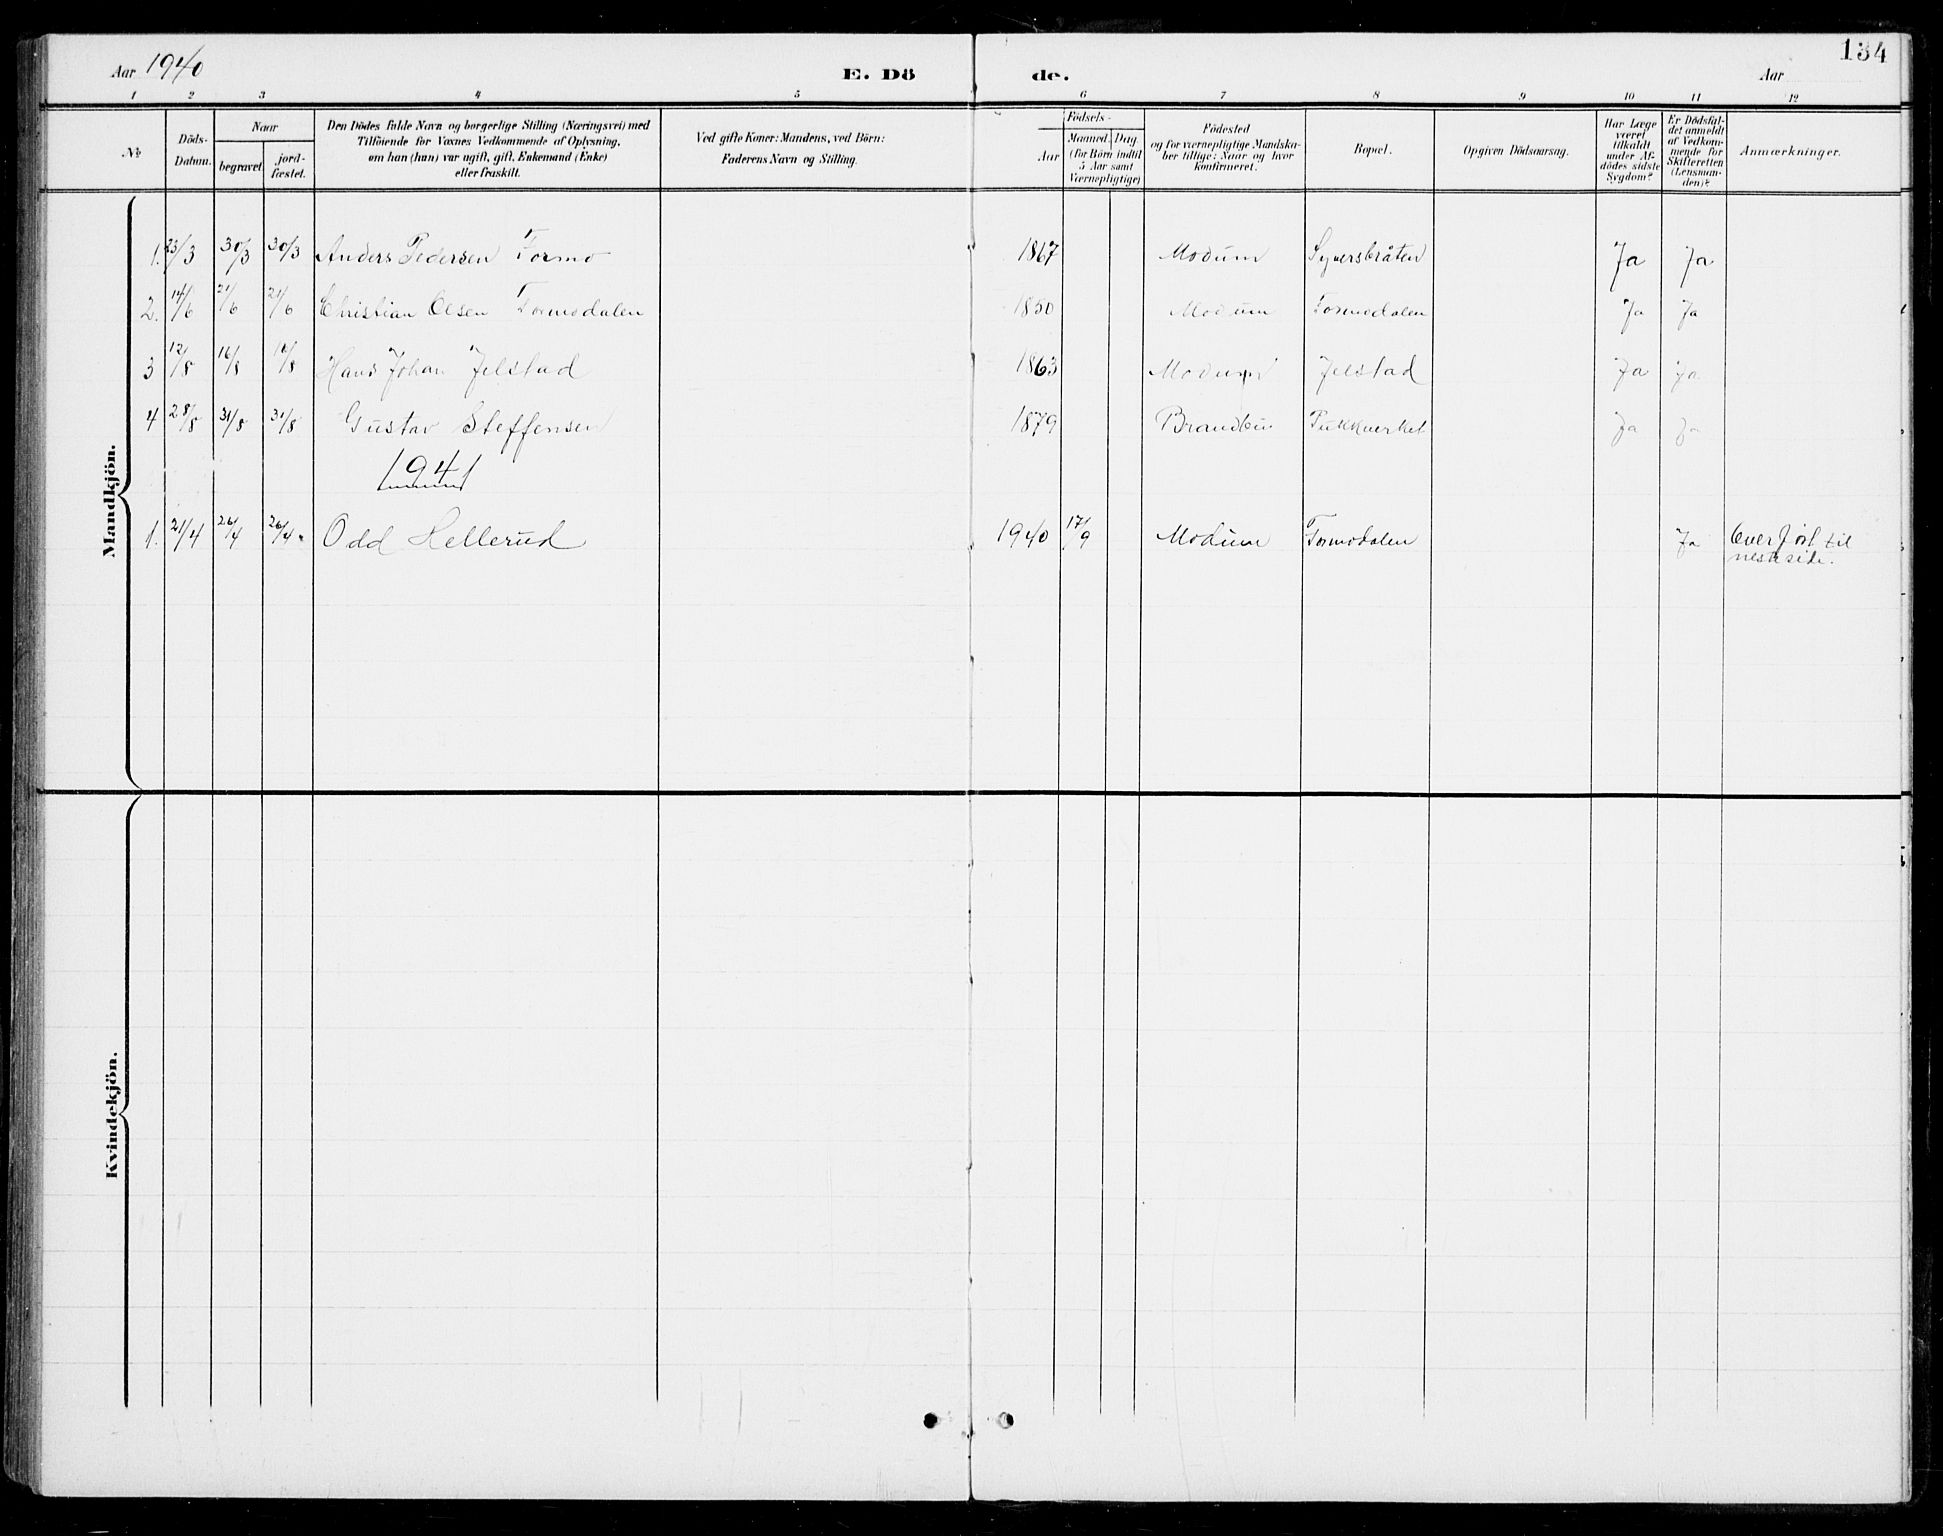 134
Aar 1940 E. Dö de. Aar
1 2 3 4 5 6 7 8 9 10 11 12
№
Döds-
Datum.
Naar
begravet.
jord-
fæstet.
Den Dödes fulde Navn og borgerlige Stilling (Næringsvei) med
Tilföiende for Voxnes Vedkommende af Oplysning,
om han (hun) var ugift, gift, Enkemand (Enke)
eller fraskilt.
Ved gifte Koner: Mandens, ved Börn:
Faderens Navn og Stilling.
Födsels-
Aar
Maaned. Dag.
(for Börn indtil
5 Aar samt
Værnepligtige)
Födested
og for værnepligtige Mandska-
ber tillige: Naar og hvor
konfirmeret.
Bopæl.
Opgiven Dödsaarsag.
Har Læge
været
tilkaldt
under Af-
dödes sidste
Sygdom?
Er Dödsfal-
det anmeldt
af Vedkom-
mende for
Skifteretten
(Lensman-
den)?
Anmærkninger.
Mandkjön.
1. 23/3 30/3 30/3 Anders Pedersen Formo 1867 Modum Syversbråten Ja Ja
2. 14/6 21/6 21/6 Christian Olsen Formodalen 1850 Modum Formodalen Ja Ja
3 12/8 16/8 16/8 Hans Johan Jelstad 1863 Modum Jelstad Ja Ja
4 28/8 31/8 31/8 Gustav Steffensen 1879 Brandbu Pukkverket Ja Ja
1941
1. 21/4 26/4 26/4. Odd Hellerud 1940 17/9 Modum Formodalen Ja Overfört til
neste side.
Kvindekjön.